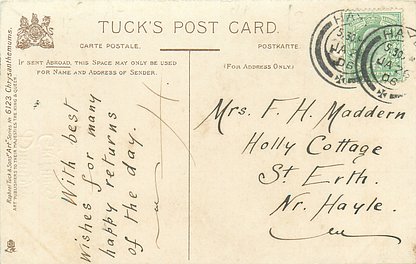 TUCK'S POST CARD.
CARTE POSTALE.
POSTKARTE.
IF SENT ABROAD, THIS SPACE MAY ONLY BE USED
FOR NAME AND ADDRESS OF SENDER.
(FOR ADDRESS ONLY.)
Raphael Tuck & Sons' "Art" Series No 6123 Chrysanthemoms.
ART PUBLISHERS TO THEIR MAJESTIES THE KING & QUEEN.
With best
wishes for many
happy returns
of the day.
Mrs. F. H. Maddern
Holly Cottage
St Erth.
Nr. Hayle.
HAY
JA
06
HAY
JA
06